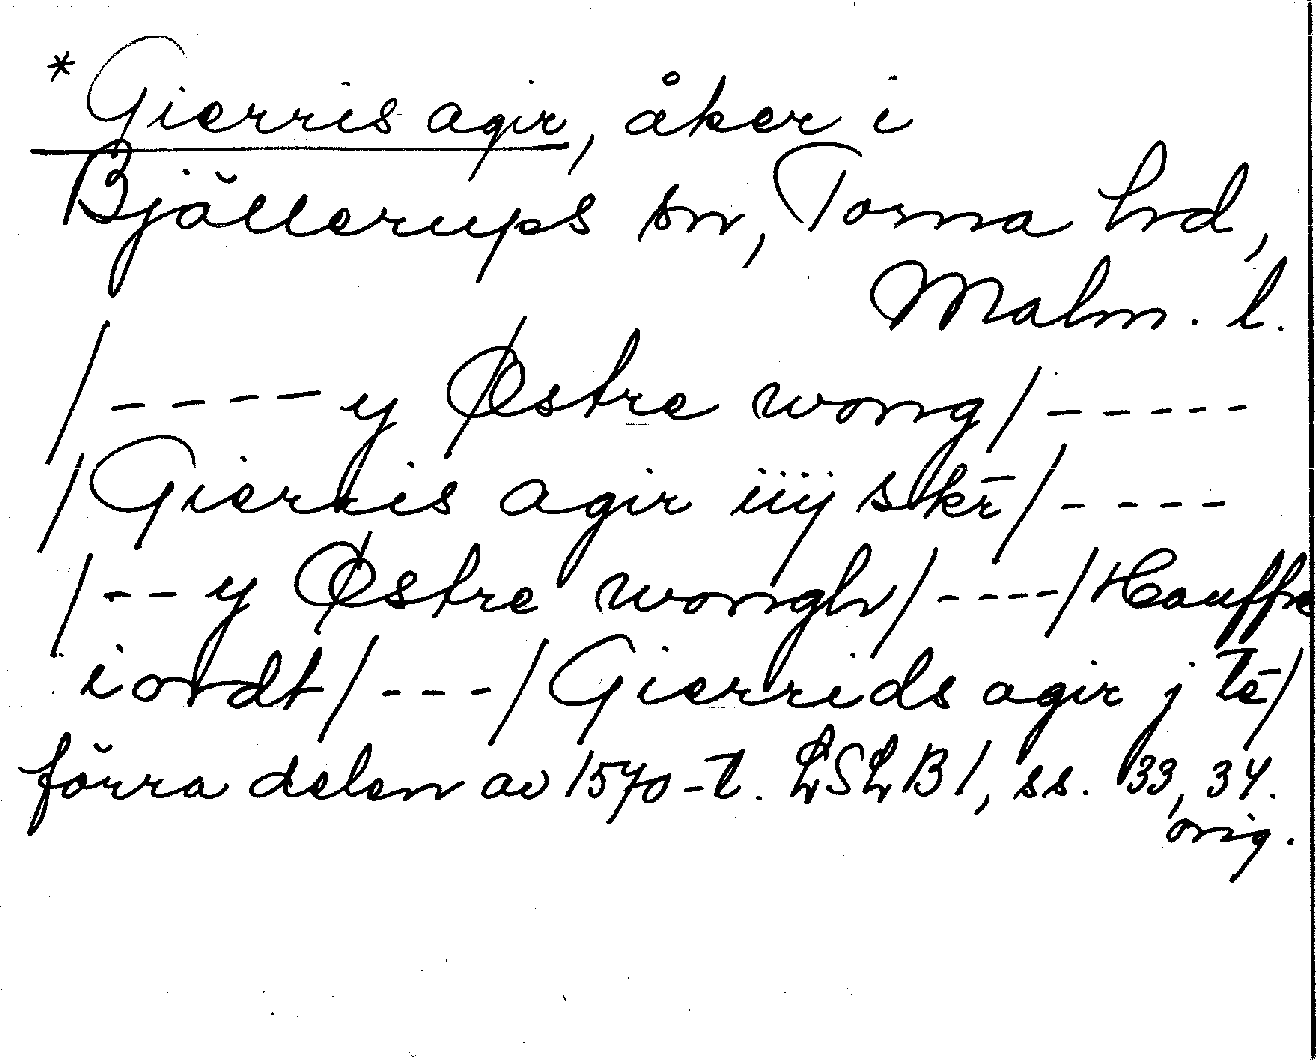 *Gierris agir, åker i
Bjällerups sn, Torna hd,
Malm. l.
/----y Østre wong/-----
/Gierris agir iiij skr̄/----
/--y Østre wongh/---/Hauffre
iordt/---/Gierrids agir j tē/
förra delen av 1570-t. LSLB1, ss. 33, 34.
orig.